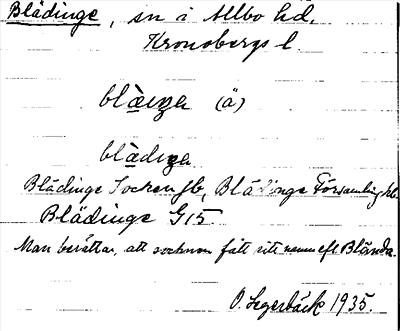 Blädinge, sn i Allbo hd.
Kronobergs l.
blæiŋa (ä)
blædiŋa
Blädinge Socken jb, Blädinge Församling kb.
Blädinge G15
Man berättar, att socknen fått sitt namn eft. Blända.
O. Segerbäck 1935